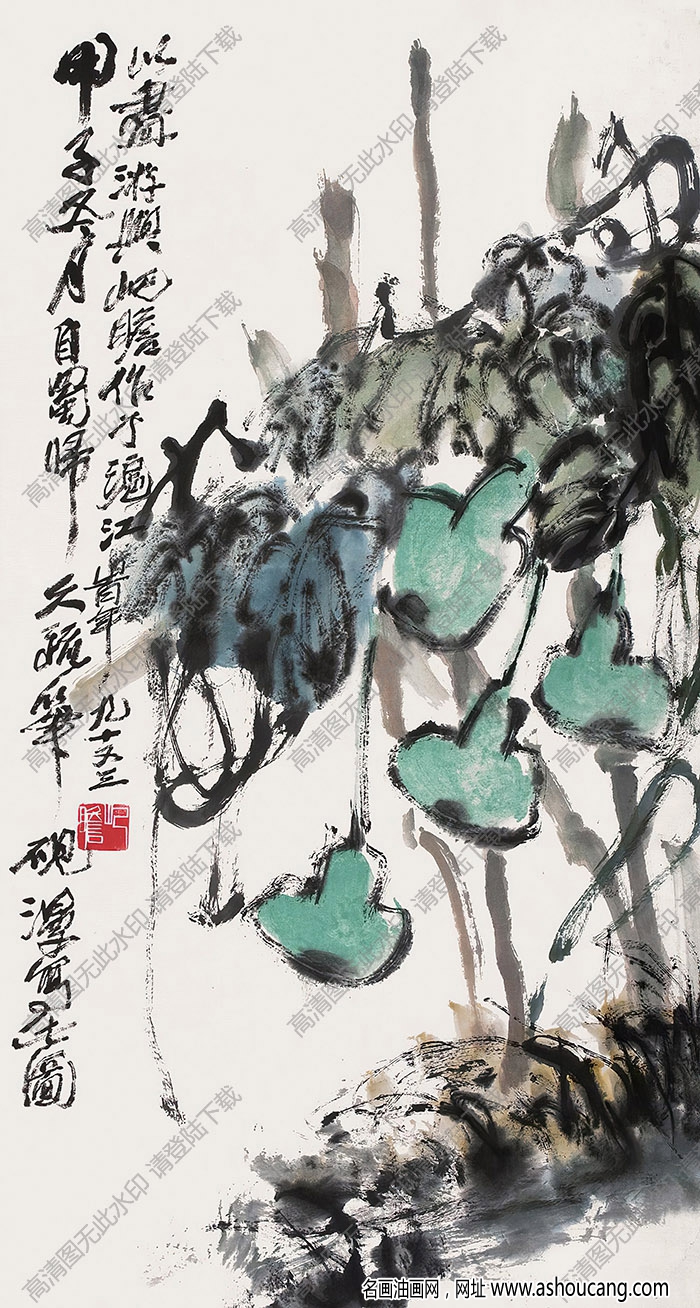 甲子冬月自蜀歸久疏筆硯漫寫此圖
以盡游興屺瞻作于滬江旹年九十又三
屺瞻
高清图无此水印 请登陆下载
名画油画网，网址 www.ashoucang.com